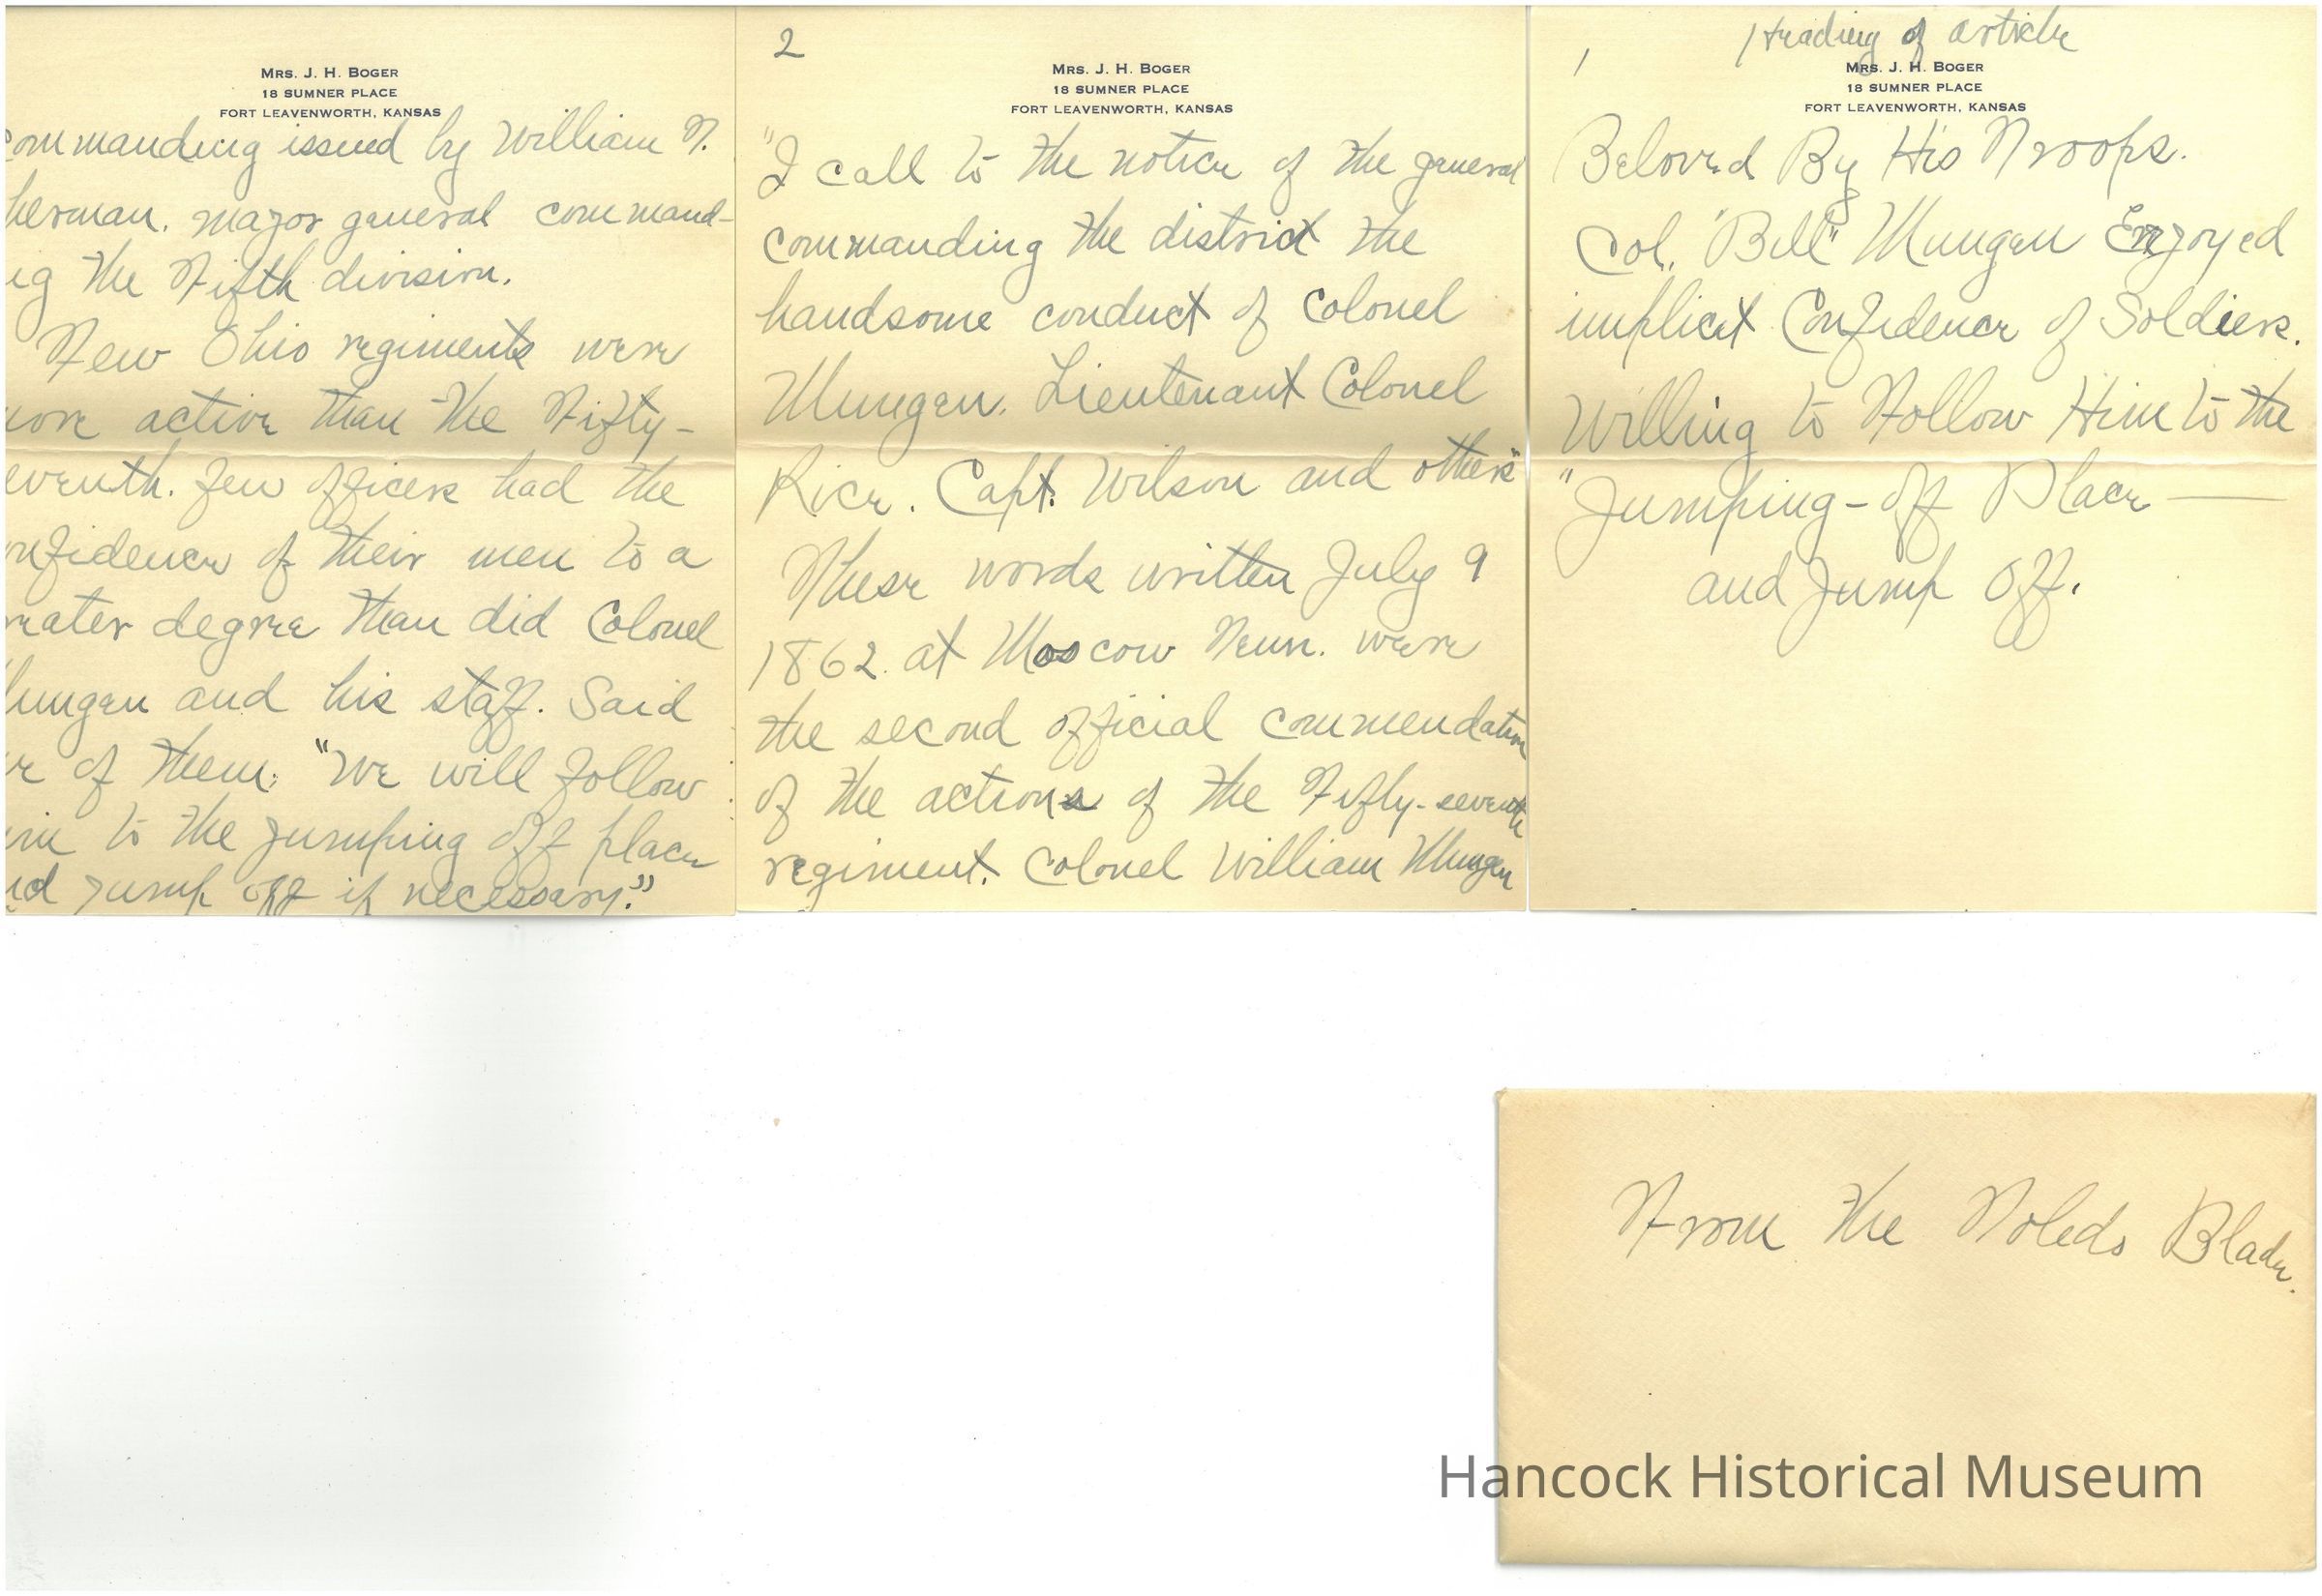 1
Heading of article
MRS. J. H. BOGER
18 SUMNER PLACE
FORT LEAVENWORTH, KANSAS
Beloved By His Troops.
Col. "Bill" Mungen Enjoyed
implicit Confidence of Soldiers.
Willing to Follow Him to the
"Jumping-off Place —
and Jump Off.
2
MRS. J. H. BOGER
18 SUMNER PLACE
FORT LEAVENWORTH, KANSAS
"I call to the notice of the general
commanding the district the
handsome conduct of Colonel
Mungen. Lieutenant Colonel
Rice. Capt. Wilson and others"
These words written July 9
1862. at Moscow Tenn. were
the second official commendation
of the actions of the Fifty-seventh
regiment. Colonel William Mungen
MRS. J. H. BOGER
18 SUMNER PLACE
FORT LEAVENWORTH, KANSAS
commanding issued by William T.
herman. major general command-
ig the Fifth division.
Few Ohio regiments were
more active than the Fifty-
eventh. few officers had the
nfidence of their men to a
reater degree than did Colonel
Mungen and his staff. Said
of them: "We will follow
to the jumping off place
nd jump off if necessary."
From the Toledo Blade.
Hancock Historical Museum